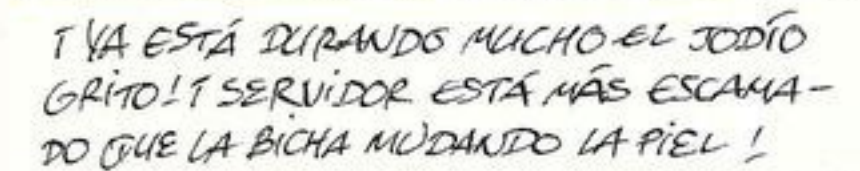 ¡YA ESTÁ DURANDO MUCHO EL JODÍO
GRITO! ¡SERVIDOR ESTÁ MÁS ESCAMA-
DO QUE LA BICHA MUDANDO LA PIEL!